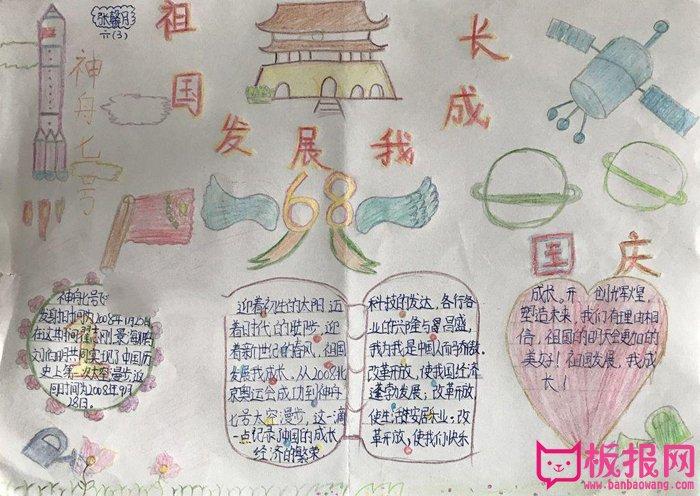 张馨月
六(3)
祖国发展我成长
神舟七号
68
国庆
神舟七号飞
发射时间为2008年9月25日
在这其间翟志刚景海鹏
刘伯明共同实现了中国历
史上第一次太空漫步返
回时间为2008年9月
28日。
迎着初生的太阳 迈
着时代的脚步,迎
着新世纪的春风,祖国
发展我成长。从2008北
京奥运会成功到神舟
七号太空漫步,这一滴
一点纪录神国的成长
经济的繁荣
科技的发达,各行各
业的兴隆与昌盛,
我为我是中国人而骄傲。
改革开放,使我国经济
蓬勃发展;改革开放
使生活安居乐业;改
革开放,使我们快乐
成长,开 创辉煌,
塑造未来,我们有理由相
信,祖国的明天会更加的
美好!祖国发展,我成
长!
板报网
www.banbaowang.com